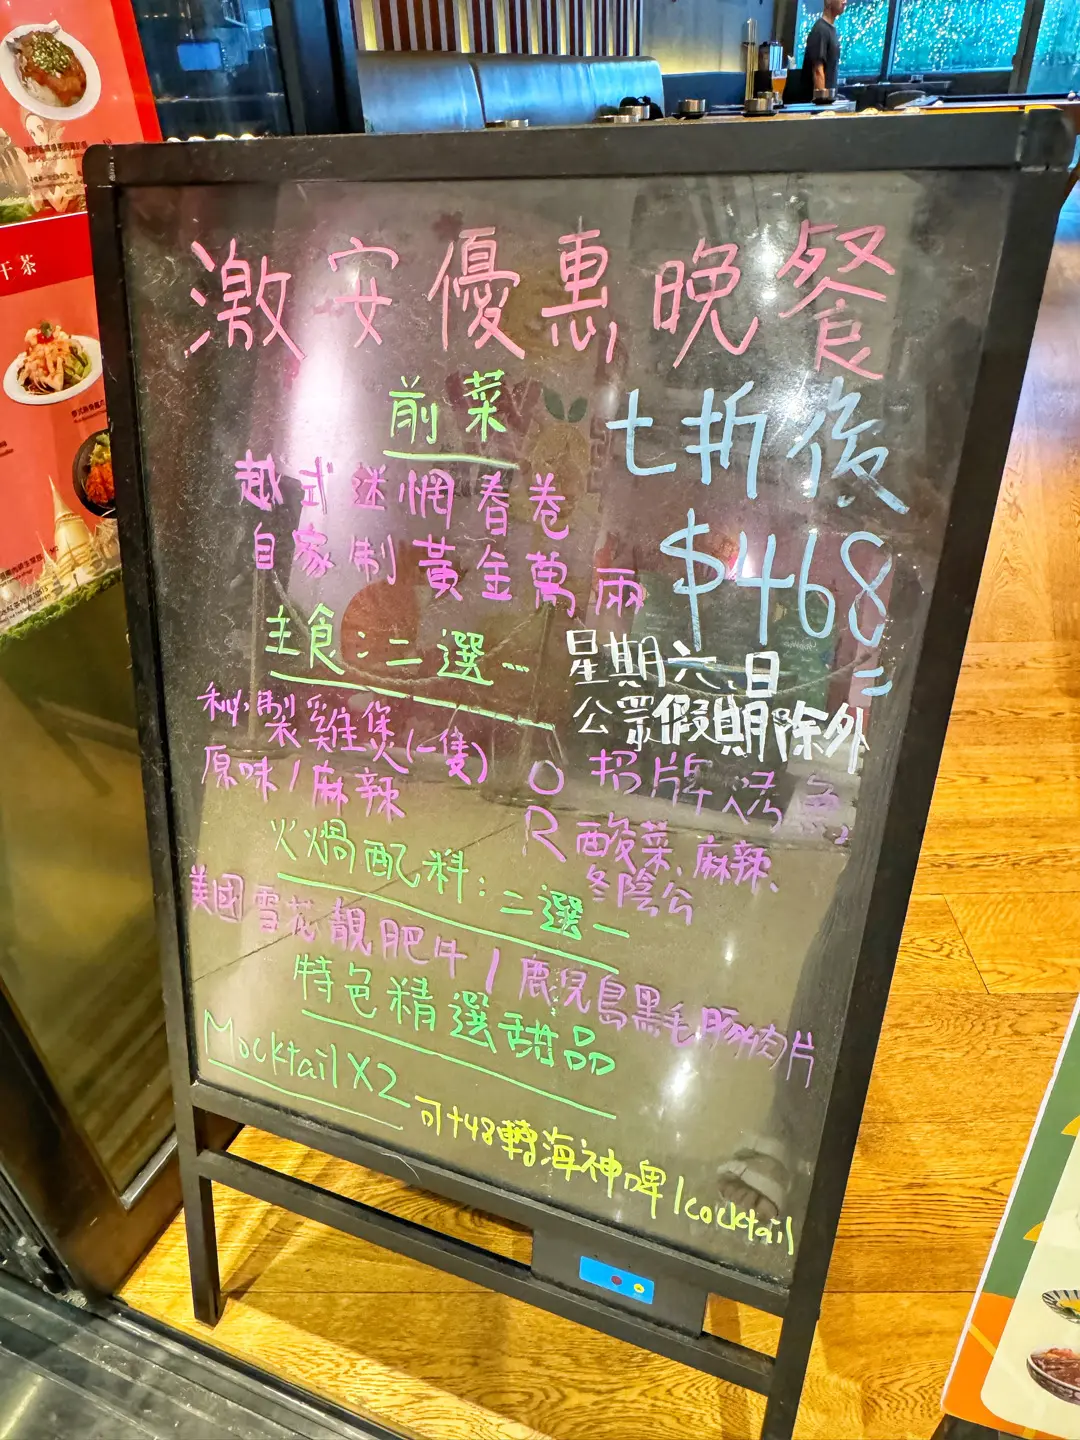 激安優惠晚餐
前菜
七折後
$468
越式迷惘春卷
自家制黃金萬兩
主食：二選一
星期六、日
公眾假期除外
秘製雞煲(一隻)
原味/麻辣
OR
招牌烤魚
酸菜、麻辣、
冬陰公
火焗配料：二選一
美國雪花靚肥牛/鹿兒島黑毛豚肉片
特色精選甜品
Mocktail X2
可+48轉海神啤/cocktail
干茶